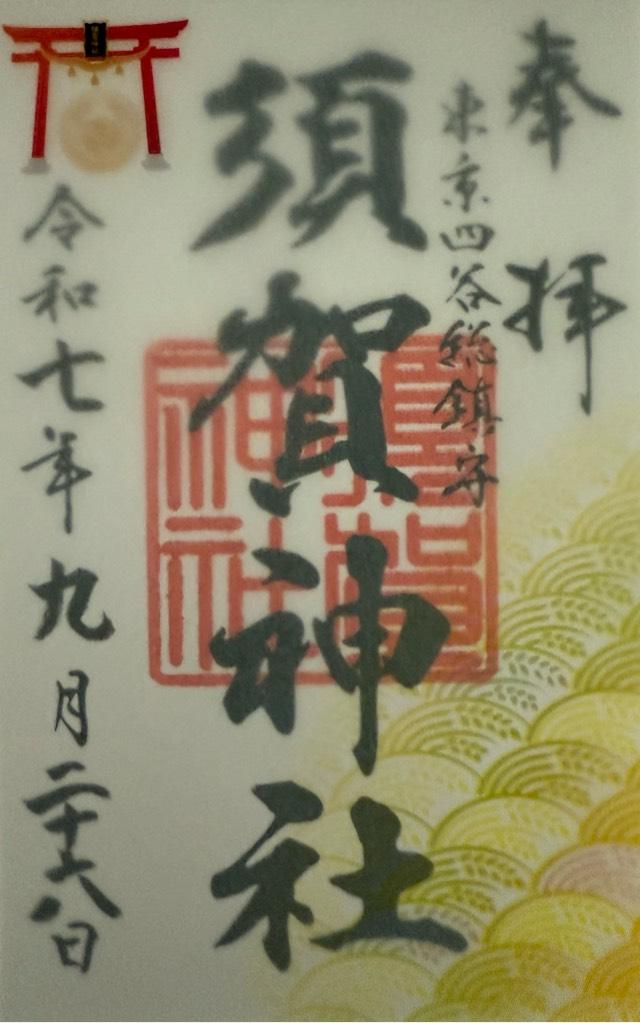 奉拝
東京四谷総鎮守
須賀神社
須賀神社
令和七年九月二十六日